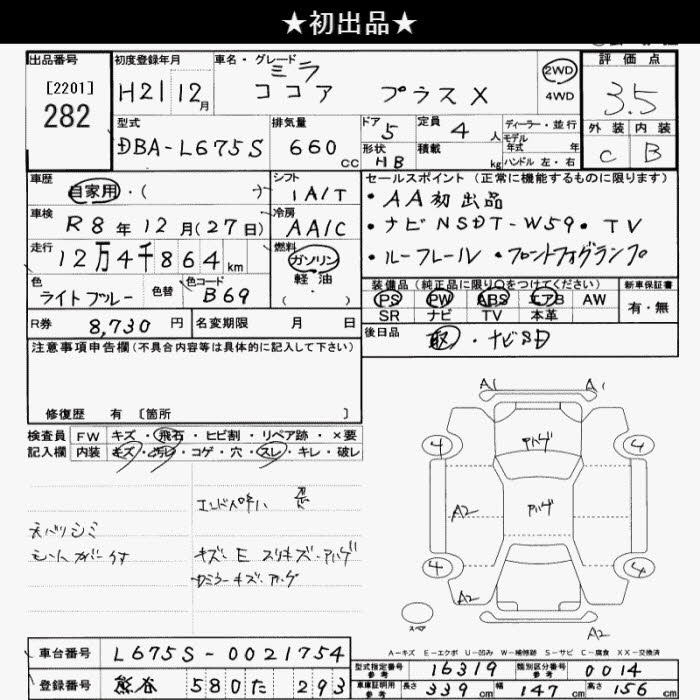 ★初出品★
出品番号 初度登録年月 車名・グレード 評価点
[2201]
282
H21 12月
ミラ
ココア プラスX
2WD
4WD
3.5
型式 排気量 ドア 定員 ディーラー・並行 外装 内装
DBA-L675S 660cc 5 4人 モデル年式 年 C B
形状 HB 積載 kg ハンドル 左・右
車歴 自家用・( ) シフト 1A/T
セールスポイント(正常に機能するものに限ります)
・AA初出品
車検 R8年12月(27日) 冷房 AA/C
・ナビNSDT-W59・TV
走行 12万4千864km 燃料 ガソリン 軽油 ( )
・ルーフレール・フロントフォグランプ
色 ライトブルー 色替 色コード B69
装備品(純正品に限り○をつけてください) 新車保証書
PS PW ABS エアB AW 有・無
SR ナビ TV 本革
R券 8,730円 名変期限 月 日
後日品 取・ナビSD
注意事項申告欄(不具合内容等は具体的に記入して下さい)
修復歴 有 [箇所 ]
検査員 FW キズ・飛石・ヒビ割・リペア跡・×要
記入欄 内装 キズ・汚レ・コゲ・穴・スレ・キレ・破レ
A1 A1
4 アハゲ 4
A2 アハゲ
4 4
A2 A2
スペア
A-キズ E-エクボ U-凹み W-補修跡 S-サビ C-腐食 XX-交換済
車台番号 L675S-0021754
登録番号 熊谷 580 た 293
型式指定番号 参考 16319 類別区分番号 参考 0014
車庫証明用 参考 長さ 339cm 幅 147cm 高さ 156cm